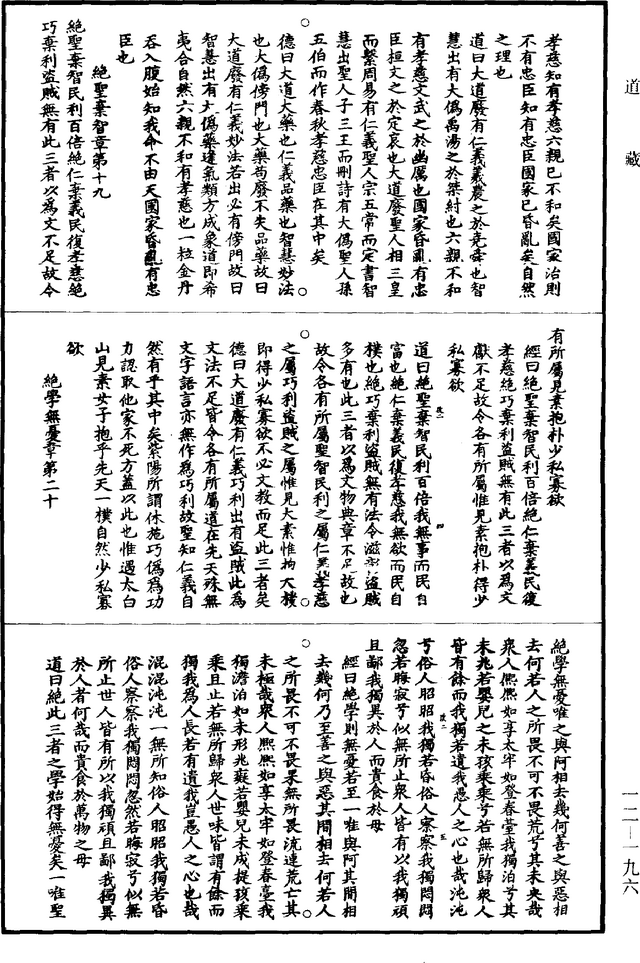 道藏
孝慈知有孝慈六親已不和矣國家治則
不有忠臣知有忠臣國家已昏亂矣自然
之理也
道曰大道廢有仁義羲農之於堯舜也智
慧出有大偽禹湯之於桀紂也六親不和
有孝慈文武之於幽厲也國家昏亂有忠
臣桓文之於定哀也大道廢聖人相三皇
而繫周易有仁義聖人宗五常而定書智
慧出聖人子三王而刪詩有大偽聖人孫
五伯而作春秋孝慈忠臣在其中矣
德曰大道大藥也仁義品藥也智慧妙法
也大偽傍門也大藥苟廢不失品藥故曰
大道廢有仁義妙法若出必有傍門故曰
智慧出有大偽藥違氣類方成象道即希
夷合自然六親不和有孝慈也一粒金丹
吞入腹始知我命不由天國家昏亂有忠
臣也
絕聖棄智章第十九
絕聖棄智民利百倍絕仁棄義民復孝慈絕
巧棄利盜賊無有此三者以為文不足故令
有所屬見素抱朴少私寡欲
經曰絕聖棄智民利百倍絕仁棄義民復
孝慈絕巧棄利盜賊無有此三者以為文
獻不足故令各有所屬惟見素抱朴得少
私寡欲
道曰絕聖棄智民利百倍我無事而民自
富也絕仁棄義民復孝慈我無欲而民自
樸也絕巧棄利盜賊無有法令滋彰盜賊
多有也此三者以為文物典章不足故也
故令各有所屬聖智民利之屬仁義孝慈
之屬巧利盜賊之屬惟見大素惟抱大樸
即得少私寡欲不必文教而足此三者矣
德曰大道廢有仁義巧利出有盜賊此為
文法不足皆令各有所屬道在先天殊無
文字語言亦無作為巧利故聖知仁義自
然有乎其中矣紫陽所謂休施巧偽為功
力認取他家不死方蓋以此也惟遇太白
山見素女子抱乎先天一樸自然少私寡
欲
絕學無憂章第二十
絕學無憂唯之與阿相去幾何善之與惡相
去何若人之所畏不可不畏荒兮其未央哉
眾人熙熙如享太牢如登春臺我獨泊兮其
未兆若嬰兒之未孩乘乘兮若無所歸眾人
皆有餘而我獨若遺我愚人之心也哉沌沌
兮俗人昭昭我獨若昏俗人察察我獨悶悶
忽若晦寂兮似無所止眾人皆有以我獨頑
且鄙我獨異於人而貴食於母
經曰絕學則無憂若至一唯與阿其間相
去幾何乃至善之與惡其間相去何若人
之所畏不可不畏果無所畏流連荒亡其
未極哉眾人熙熙如享太牢如登春臺我
獨澹泊如未形兆藐若嬰兒未成提孩乘
乘且止若無所歸眾人世味皆謂有餘而
獨我為人長若有遺我豈愚人之心也哉
混混沌沌一無所知俗人昭昭我獨若昏
俗人察察我獨悶悶忽然若晦寂兮似無
所止世人皆有所以我獨頑且鄙我獨異
於人者何哉而貴食於萬物之母
道曰絕此三者之學始得無憂矣一唯聖
一二—一九六